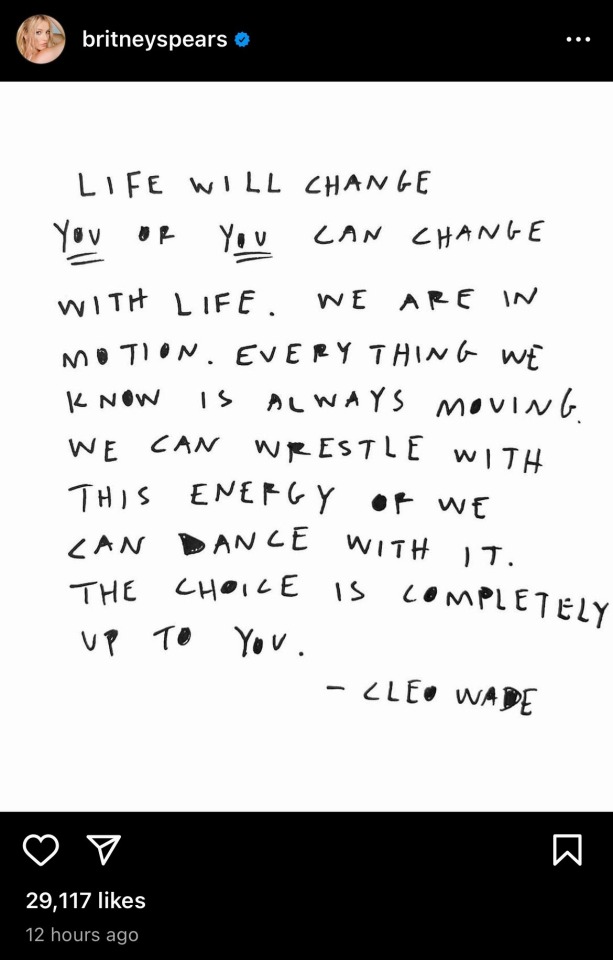 britneyspears
LIFE WILL CHANGE
YOU OR YOU CAN CHANGE
WITH LIFE. WE ARE IN
MOTION. EVERYTHING WE
KNOW IS ALWAYS MOVING.
WE CAN WRESTLE WITH
THIS ENERGY OR WE
CAN DANCE WITH IT.
THE CHOICE IS COMPLETELY
UP TO YOU.
– CLEO WADE
29,117 likes
12 hours ago